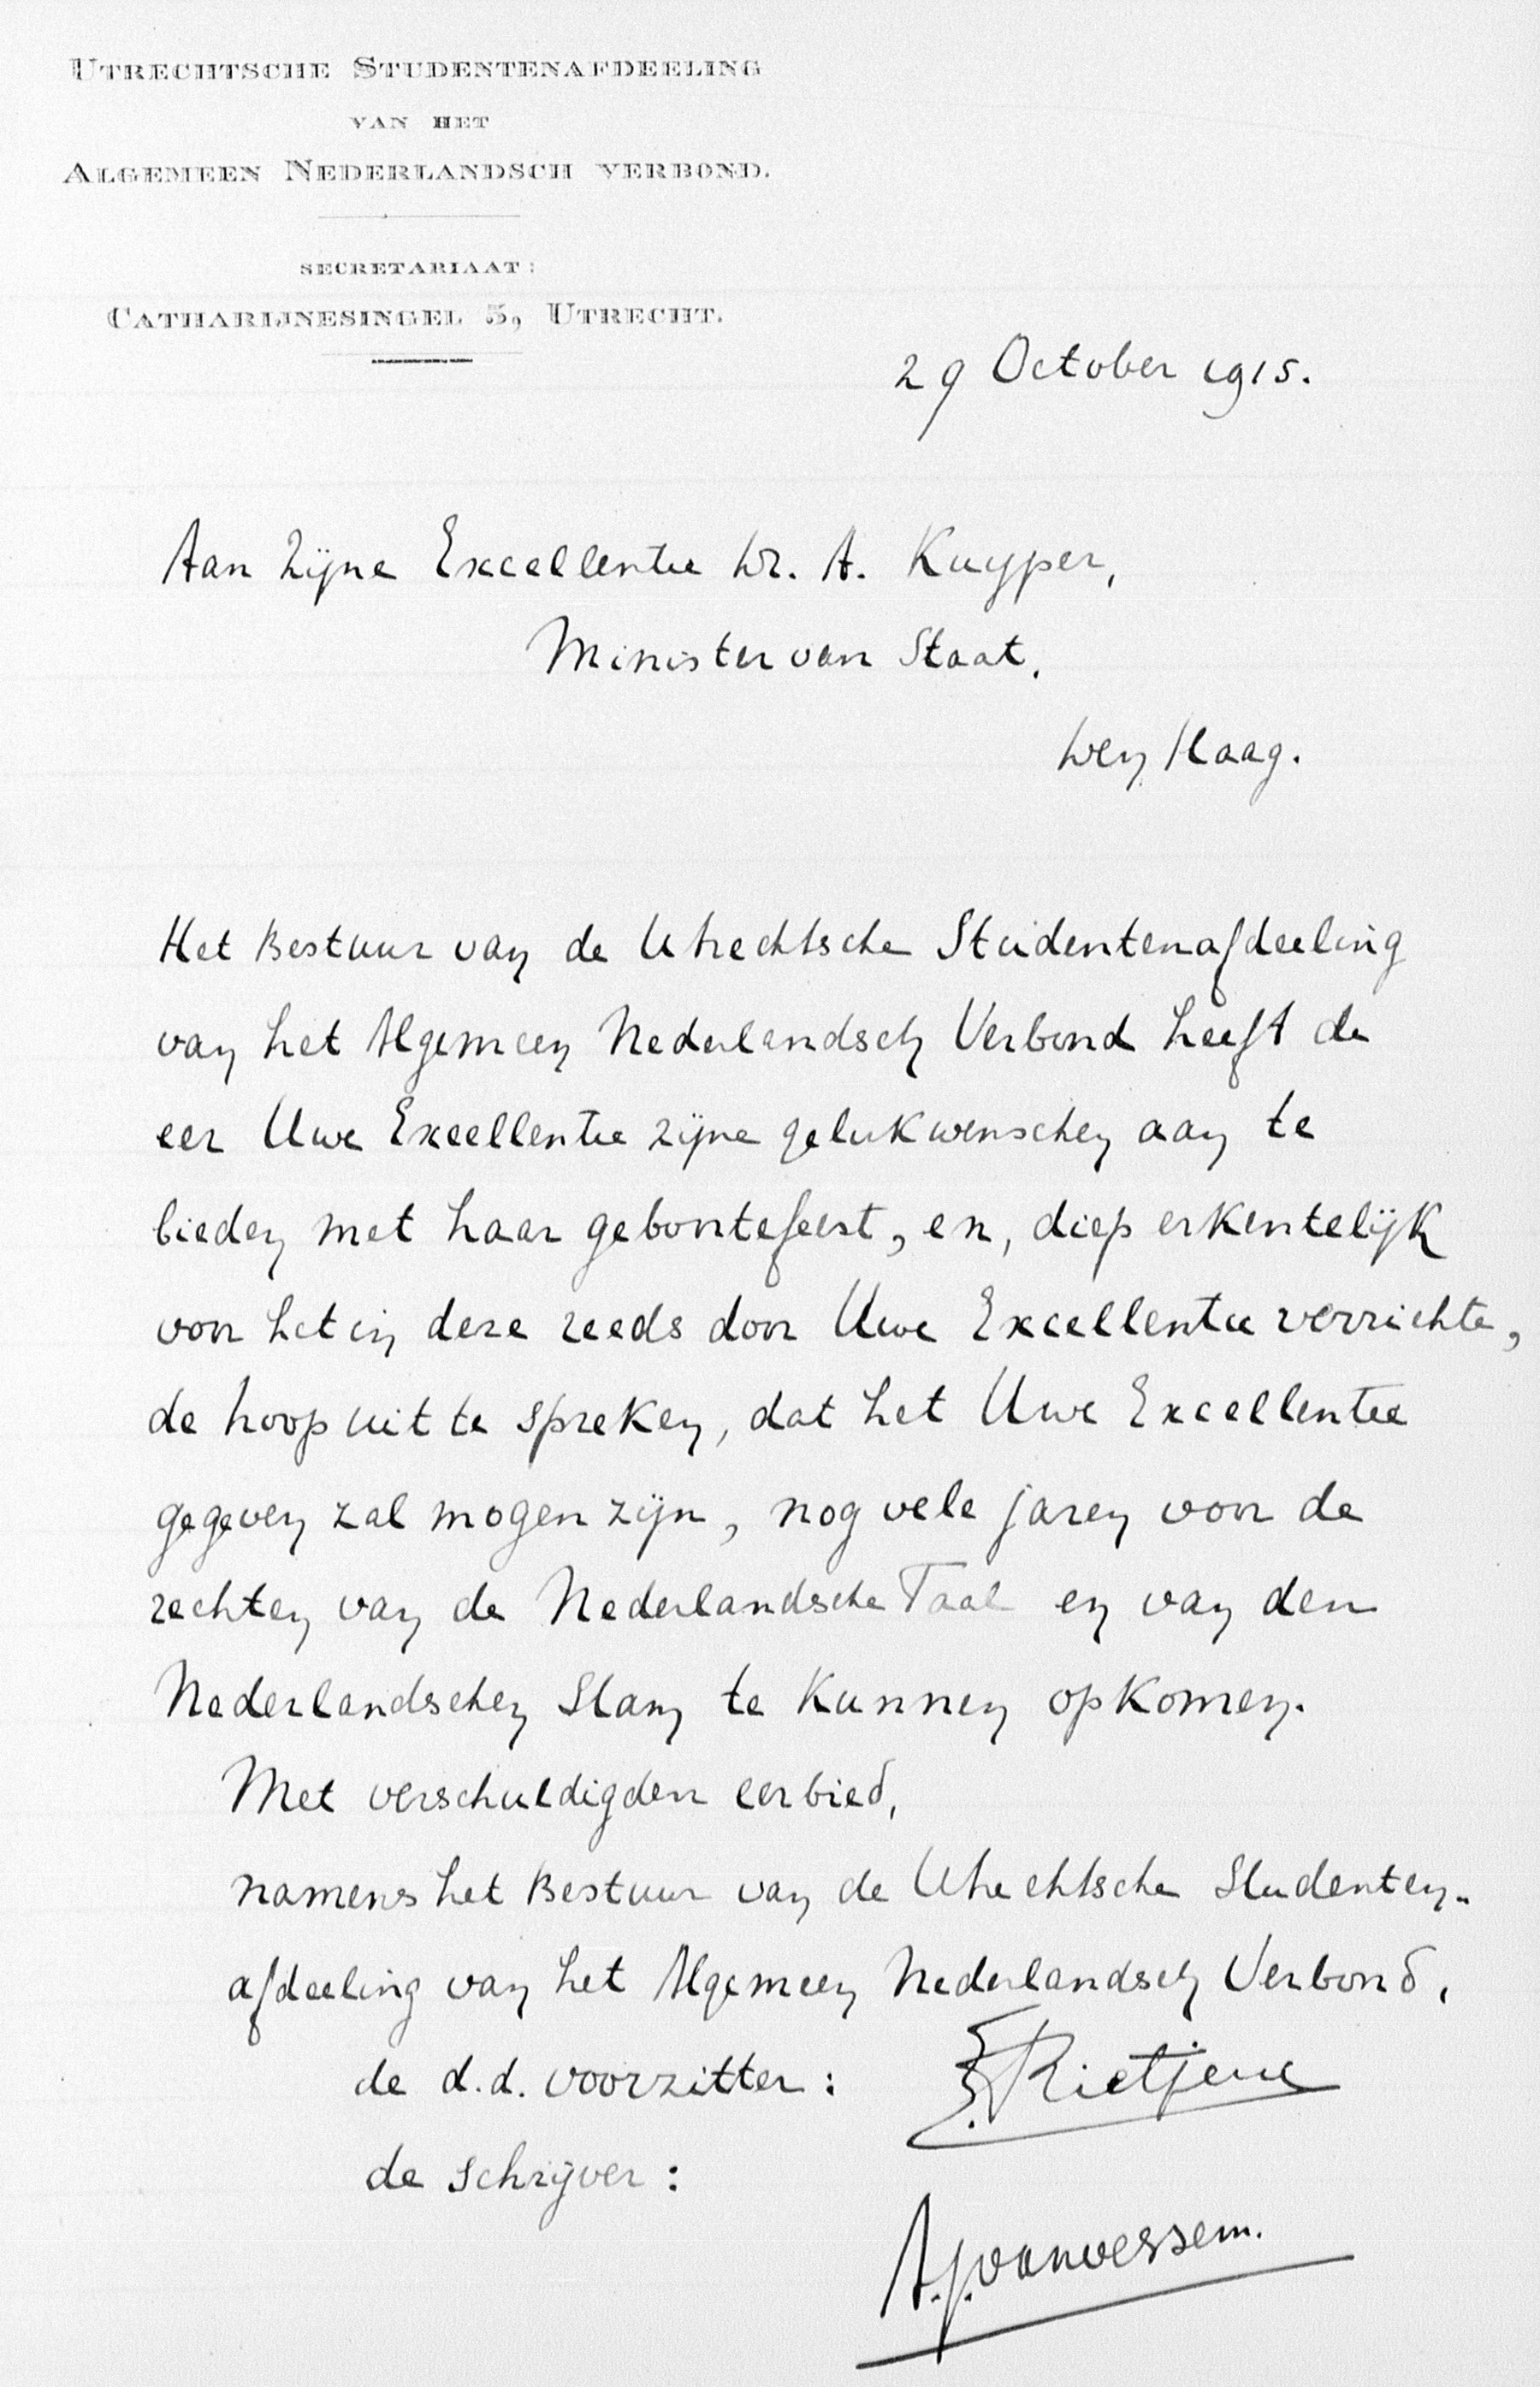 UTRECHTSCHE STUDENTENAFDEELING
VAN HET
ALGEMEEN NEDERLANDSCH VERBOND.
SECRETARIAAT:
CATHARIJNESINGEL 5, UTRECHT.
29 October 1915.
Aan Zijne Excellentie Dr. A. Kuyper,
Minister van Staat.
Den Haag.
Het Bestuur van de Utrechtsche Studentenafdeeling
van het Algemeen Nederlandsch Verbond heeft de
eer Uwe Excellentie zijne gelukwenschen aan te
bieden met haar geboortefeest, en, diep erkentelijk
voor het in deze reeds door Uwe Excellentie verrichte,
de hoop uit te spreken, dat het Uwe Excellentie
gegeven zal mogen zijn, nog vele jaren voor de
rechten van de Nederlandsche Taal en van den
Nederlandschen Stam te kunnen opkomen.
Met verschuldigden eerbied,
namens het Bestuur van de Utrechtsche Studenten-
afdeeling van het Algemeen Nederlandsch Verbond,
de d.d. voorzitter: Rietjens
de schrijver:
A.J. van Vessem.